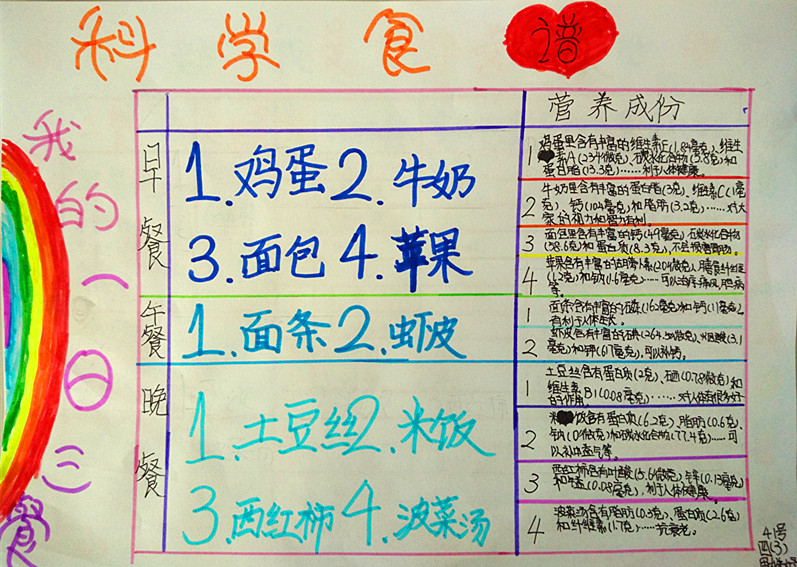 科学食谱
我的一日三餐
营养成份
早餐
1.鸡蛋 2.牛奶
3.面包 4.苹果
1 鸡蛋里含有丰富的维生素E(1.84毫克)、维生
素A(234微克)、碳水化合物(2.8克)和
蛋白脂(13.3克)……利于人体健康。
2 牛奶里含有丰富的蛋白脂(3克)、维生素C(1毫
克)、钙(104毫克)和脂肪(3.2克)……对大
家的视力和智力有利。
3 面包里含有丰富的钙(49毫克)、碳水化合物
(58.6克)和蛋白质(8.3克),
4 苹果含有丰富的胡萝卜素(20微克)、膳食纤维
(1.2克)和钠(1.6毫克)……可以治疗痛风、胆病
等。
午餐
1.面条 2.虾皮
1 面条含有丰富的磷(162毫克)和钙(11毫克)、
有利于人体生长。
2 虾皮含有丰富的碘(264.5微克)、(3.1
毫克)和钾(617毫克),可以补钙。
晚餐
1.土豆丝 2.米饭
3.西红柿 4.波菜汤
1 土豆丝含有蛋白质(2克)、硒(0.78微克)和
维生素B1(0.08毫克)……对人体有很多好
的作用。
2 米饭含有蛋白质(6.2克)、脂肪(0.6克)、
钠(10微克)和碳水化合物(77.4克)……可
以补中益气等。
3 西红柿含有叶酸(5.6微克)、锌(0.13毫克)
和(0.08毫克),利于人体健康。
4 波菜汤含有脂肪(0.3克)、蛋白质(2.6克)
和纤维素(1.7克)……抗衰老。
41号
四(3)